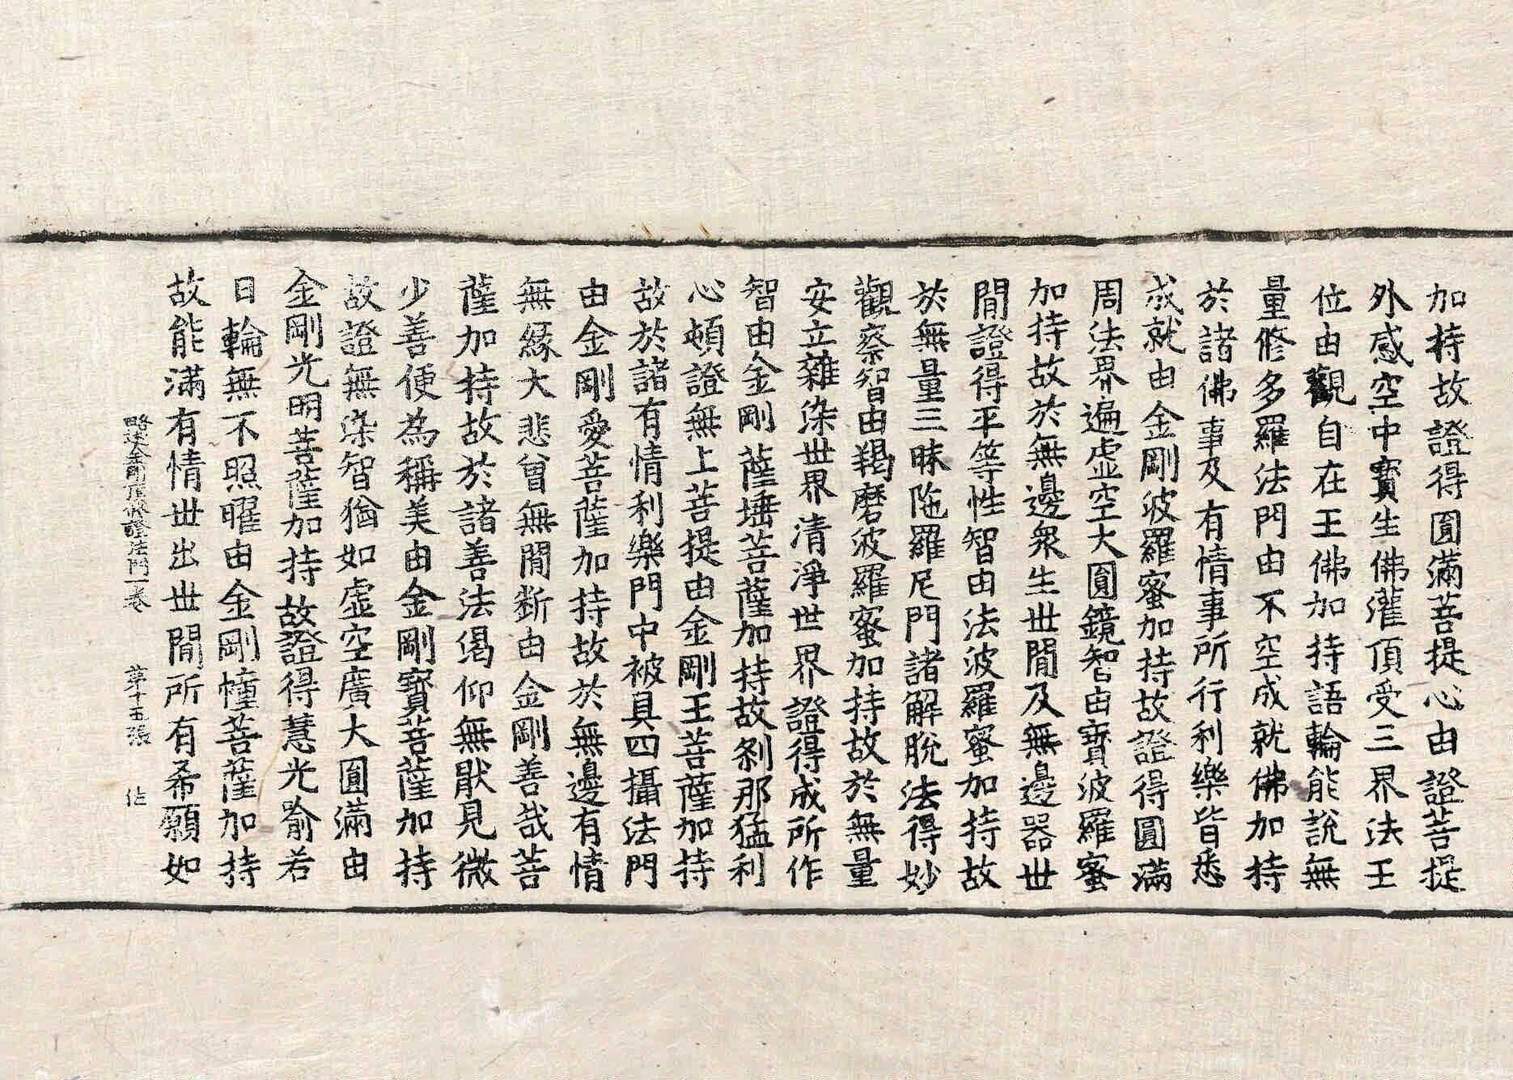 加持故證得圓滿菩提心由證菩提
外感空中寶生佛灌頂受三界法王
位由觀自在王佛加持語輪能說無
量修多羅法門由不空成就佛加持
於諸佛事及有情事所行利樂皆悉
成就由金剛波羅蜜加持故證得圓滿
周法界遍虛空大圓鏡智由寶波羅蜜
加持故於無邊衆生世閒及無邊器世
閒證得平等性智由法波羅蜜加持故
於無量三昧陁羅尼門諸解脫法得妙
觀察智由羯磨波羅蜜加持故於無量
安立雜染世界清淨世界證得成所作
智由金剛薩埵菩薩加持故剎那猛利
心頓證無上菩提由金剛王菩薩加持
故於諸有情利樂門中被具四攝法門
由金剛愛菩薩加持故於無邊有情
無緣大悲曾無閒斷由金剛善哉菩
薩加持故於諸善法渴仰無猒見微
少善便為稱美由金剛寶菩薩加持
故證無染智猶如虛空廣大圓滿由
金剛光明菩薩加持故證得慧光喻若
日輪無不照曜由金剛幢菩薩加持
故能滿有情世出世閒所有希願如
略述金剛頂修證法門一卷 第十五張 佐